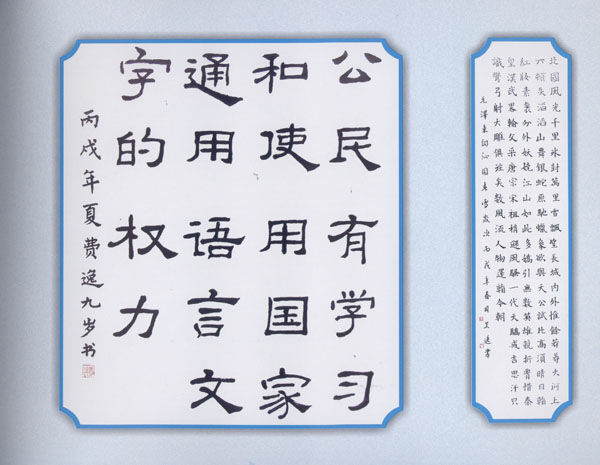 公民有学习
和使用国家
通用语言文
字的权力
丙戌年夏费逸九岁书
北國風光千里冰封萬里雪飄望長城內外惟餘莽莽大河上
下頓失滔滔山舞銀蛇原馳蠟象欲與天公試比高須晴日看
紅妝素裹分外妖嬈江山如此多嬌引無數英雄競折腰惜秦
皇漢武略輸文采唐宗宋祖稍遜風騷一代天驕成吉思汗只
識彎弓射大雕俱往矣數風流人物還看今朝
毛澤東詞沁園春雪 丙戌年春月